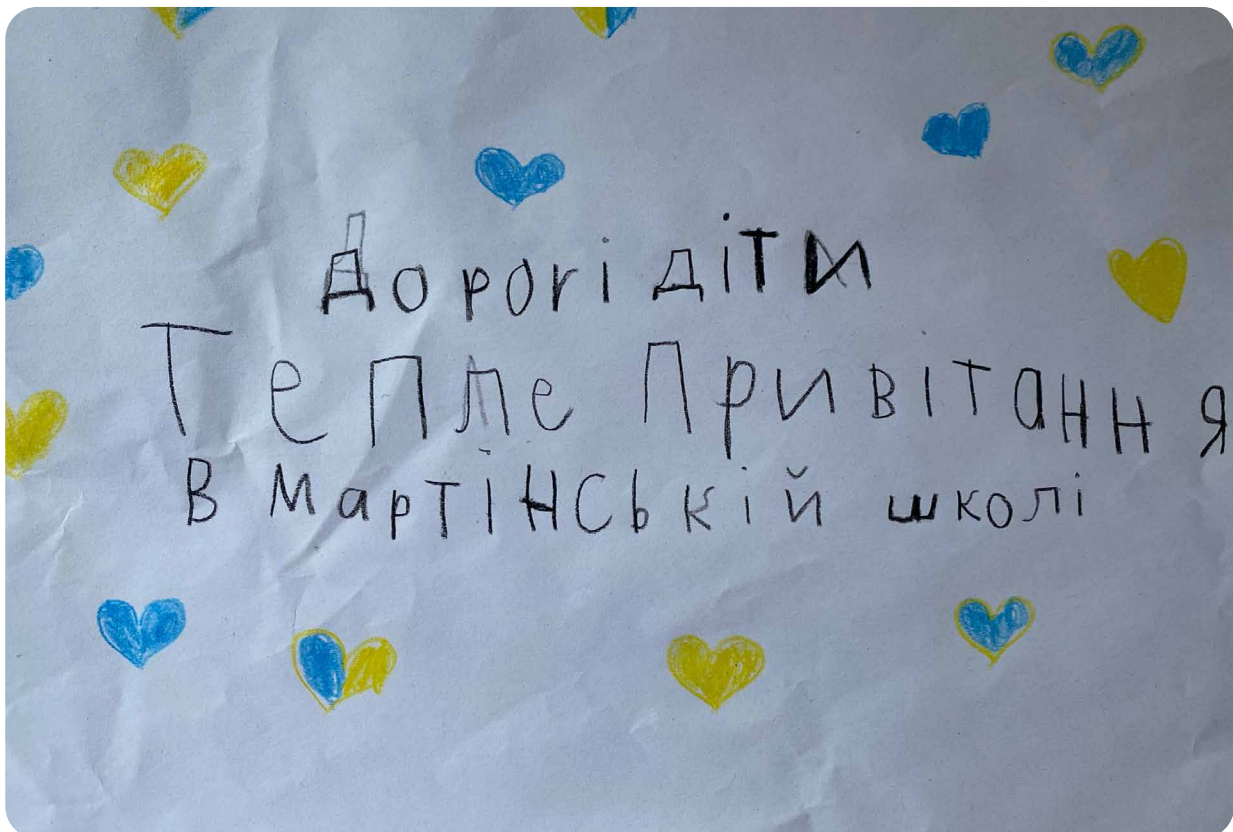 Дорогі діти
Тепле Привітання
в Мартінській школі